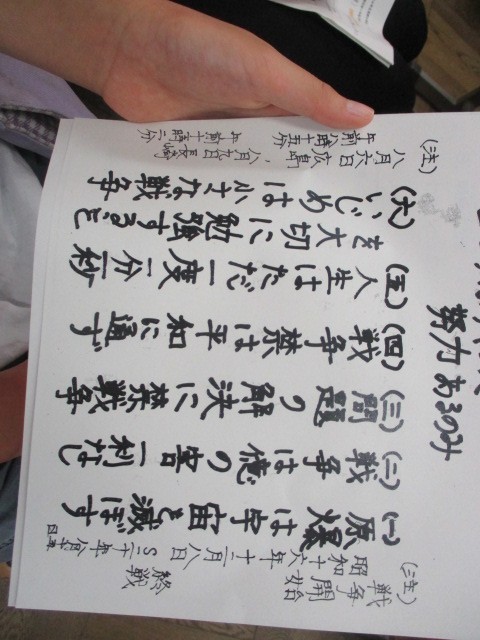 努力あるのみ
(注) 戦争 開始 昭和十六年十二月八日
終戦 S二十年八月十五日
(一) 原爆は宇宙を滅ぼす
(二) 戦争は億の害一利なし
(三) 問題の解決に禁戦争
(四) 戦争禁は平和に通ず
(五) 人生はただ一度一分一秒
を大切に勉強すること
(六) いじめは小さな戦争
(注) 八月六日広島 午前八時十五分
八月九日長崎 午前十一時二分